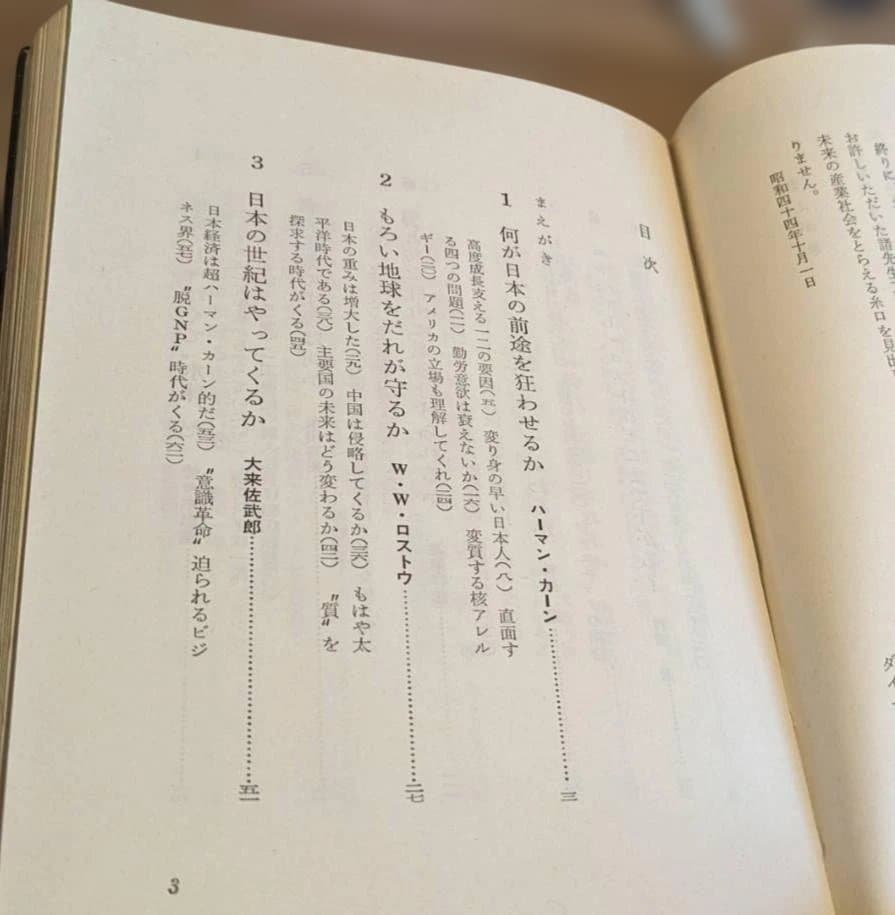 終りに
お許しいただいた諸先生
未来の産業社会をとらえる糸口を見出
りません。
昭和四十四年十月一日
目次
まえがき
1 何が日本の前途を狂わせるか ハーマン・カーン…………三
高度成長支える一二の要因(五) 変り身の早い日本人(八) 直面す
る四つの問題(一一) 勤労意欲は衰えないか(一六) 変質する核アレル
ギー(二〇) アメリカの立場も理解してくれ(二四)
2 もろい地球をだれが守るか W・W・ロストウ…………二七
日本の重みは増大した(二九) 中国は侵略してくるか(三六) もはや太
平洋時代である(三八) 主要国の未来はどう変わるか(四二) “質”を
探求する時代がくる(四五)
3 日本の世紀はやってくるか 大来佐武郎…………五一
日本経済は超ハーマン・カーン的だ(五三) “意識革命”迫られるビジ
ネス界(五七) “脱GNP”時代がくる(六二)
3